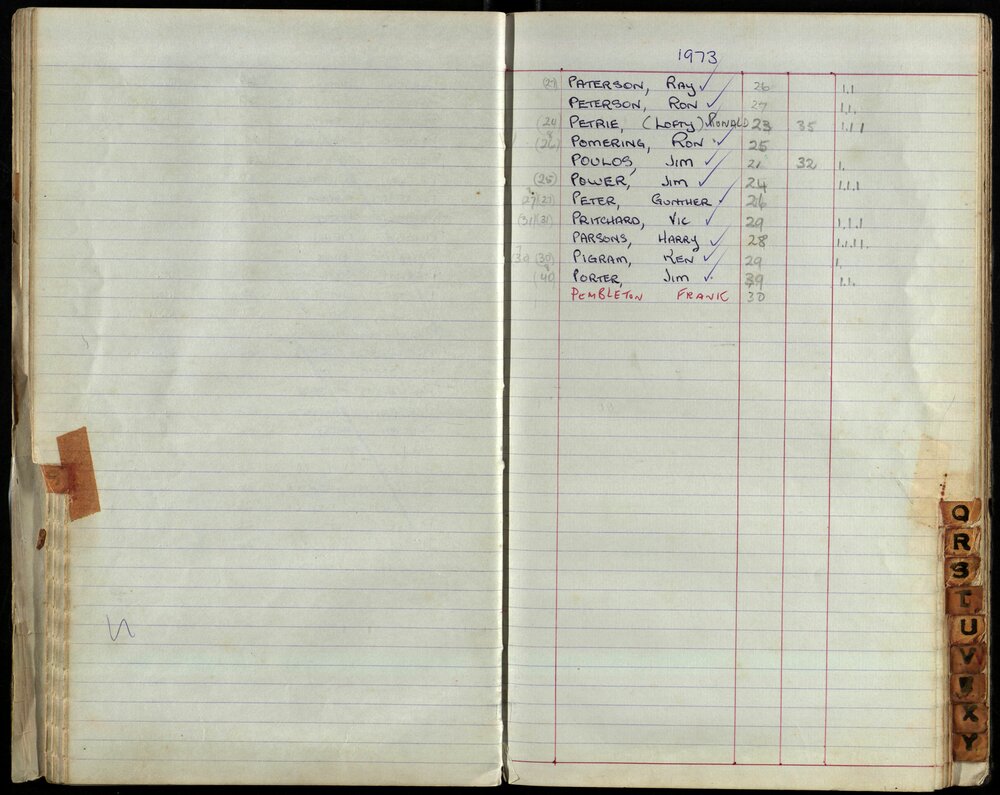 1973
(27) PATERSON, RAY ✓ 26 1.1
PETERSON, RON ✓ 27 1.1.
(24 PETRIE, (LOFTY) RONALD 23 35 1.1 1
(26) POMERING, RON ✓ 25
POULOS, JIM ✓ 21 32 1.
(25) POWER, JIM ✓ 24 1.1.1
27(27) PETER, GUNTHER ✓ 26
(31(31) PRITCHARD, VIC ✓ 29 1.1.1
PARSONS, HARRY ✓ 28 1.1.1.1.
30 (30) PIGRAM, KEN ✓ 29 1.
(40) PORTER, JIM ✓ 39 1.1.
PEMBLETON FRANK 30
Q
R
S
T
U
V
X
Y